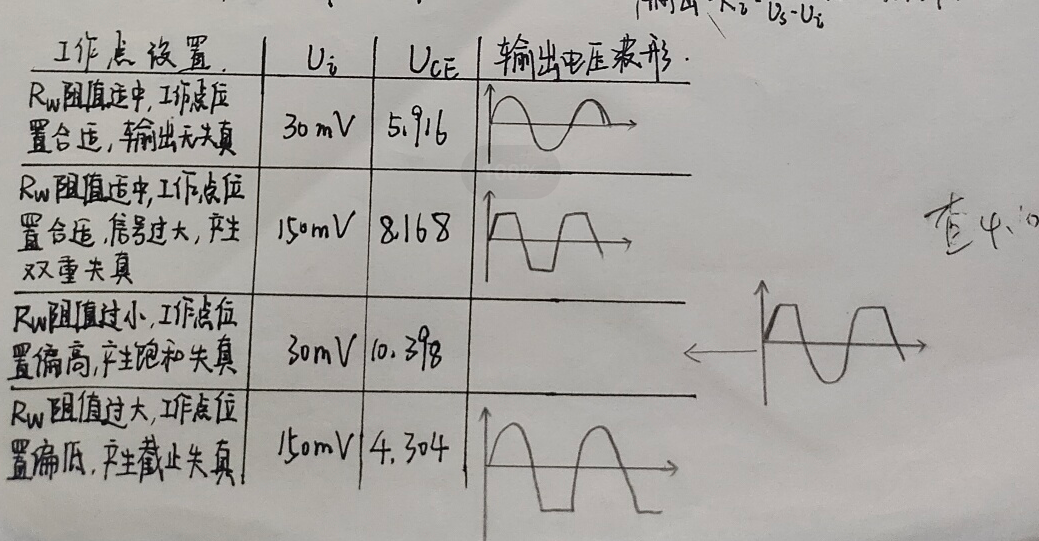 输出 Ri Us-Ui
工作点设置. Ui UCE 输出电压波形.
RW阻值适中,工作点位
置合适,输出无失真 30mV 5.916
RW阻值适中,工作点位
置合适,信号过大,产生 150mV 8.168
双重失真
RW阻值过小,工作点位
置偏高,产生饱和失真 30mV 10.398
RW阻值过大,工作点位
置偏低,产生截止失真 150mV 4.304